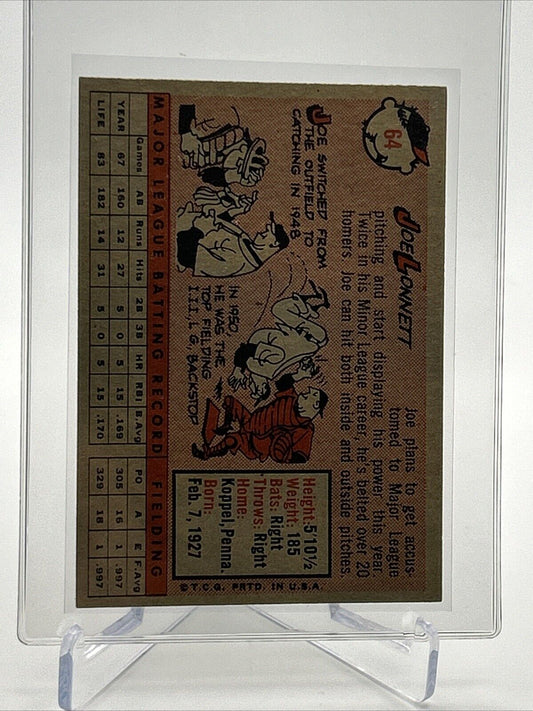 64
JOE LONNETT
Joe plans to get accus-
tomed to Major League
pitching and start displaying his power this year.
Twice in his Minor League career, he's belted over 20
homers. Joe can hit both inside and outside pitches.
JOE SWITCHED FROM
THE OUTFIELD TO
CATCHING IN 1948.
IN 1950,
HE WAS THE
TOP FIELDING
I.I.I. LG. BACKSTOP
Height: 5/10½
Weight: 185
Bats: Right
Throws: Right
Home:
Koppel, Penna.
Born:
Feb. 7, 1927
©T.C.G. PRTD. IN U.S.A.
MAJOR LEAGUE BATTING RECORD FIELDING
Games AB Runs Hits 2B 3B HR RBI B.Avg PO A E F.Avg
YEAR 67 160 12 27 5 0 5 15 .169 305 16 1 .997
LIFE 83 182 14 31 5 0 5 15 .170 329 18 1 .997